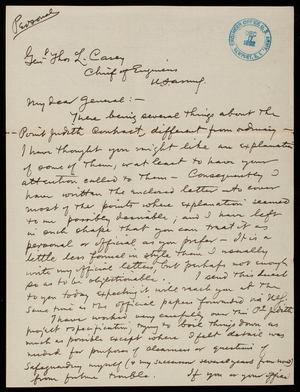 Personal
ENGINEER OFFICE, U.S. ARMY
NEWPORT, R.I.
DEC
1892
Genl. Thos L. Casey
Chief of Engineers
U.S. Army
My dear General:—
There being several things about the
Point Judith Contract, different from ordinary
I have thought you might like an explanation
of some of them, or at least to have your
attention called to them — Consequently I
have written the enclosed letter to cover
most of the points where explanation seemed
to me possibly desirable; and I have left
in such shape that you can treat it as
personal or official as you prefer — It is a
little less formal in style than I usually
write my official letters, but perhaps not enough
so as to be objectionable. I send this direct
to you today expecting it will reach you at the
same time as the official papers forwarded via
I have worked very carefully over this Pt Judith
project & specification, trying to boil things down as
much as possible except where I felt detail was
needed for purposes of clearness or question of
safeguarding myself (& my successor several years from now)
from future trouble. If you or your office